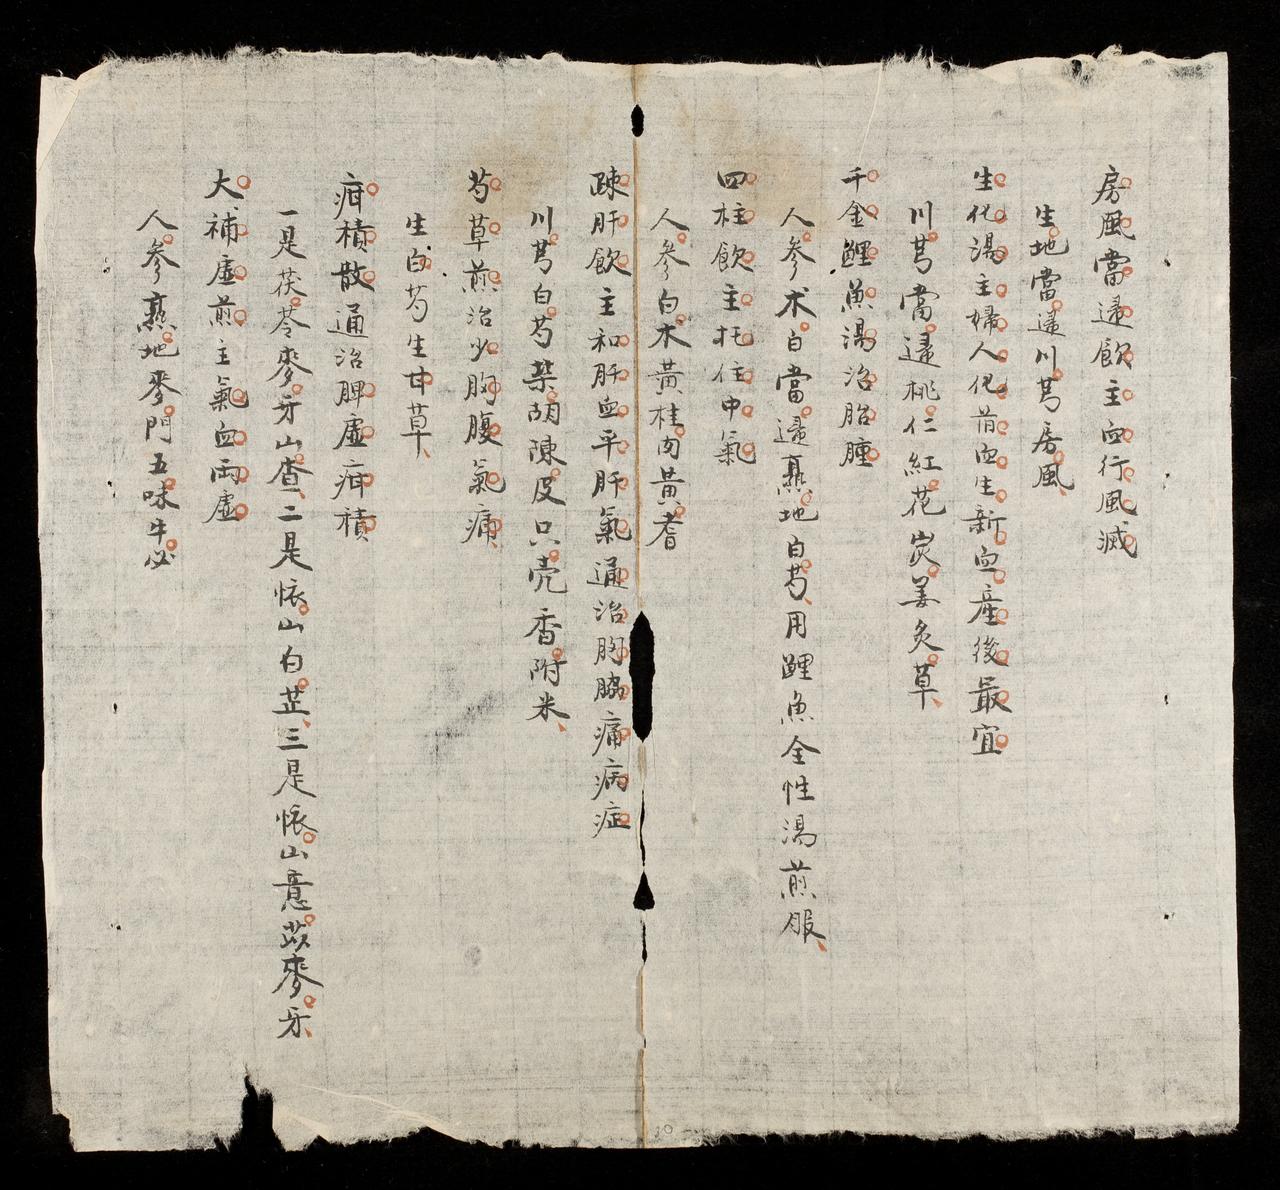 房風當㱕飲主血行風滅
生地當㱕川芎房風
生化湯主婦人化瘀血生新血產後最宜
川芎當㱕桃仁紅花炭姜炙草
千金鯉魚湯治胎腫
人參术白當㱕熟地白芍用鯉魚全性湯煎服
四柱飲主托住中氣
人參白术黃桂肉黃耆
疎肝飲主和肝血平肝氣通治胸脇痛病症
川芎白芍柴胡陳皮只壳香附米
芍草煎治少胸腹氣痛
生白芍生甘草
疳積散通治脾虛疳積
一是茯苓麥牙山查二是懷山白芷三是懷山意苡麥牙
大補虛煎主氣血両虛
人參熟地麥門五味牛必
10